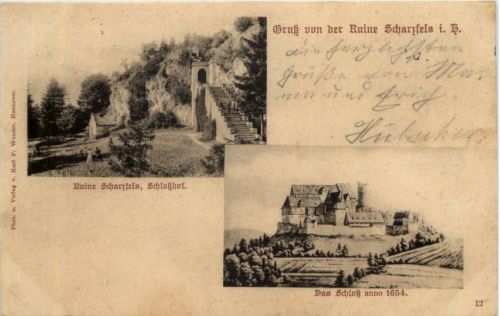 Gruß von der Ruine Scharzfels i. H.
die herzlichsten
Grüße von Ma-
ma und Erich
Hübscher
Phot. u. Verlag v. Karl F. Wunder, Hannover.
Ruine Scharzfels, Schloßhof.
Das Schloß anno 1654.
12